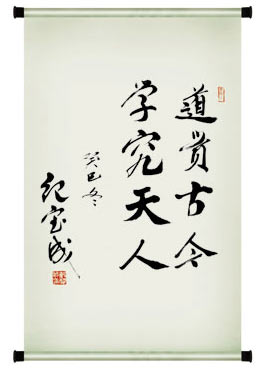 道贯古今
学究天人
癸巳冬
纪宝成